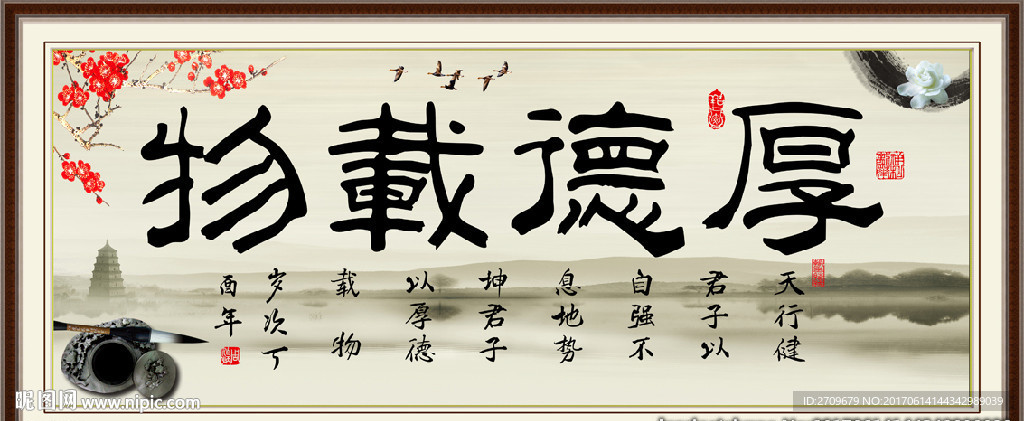 厚德載物
天行健
君子以
自强不
息地势
坤君子
以厚德
载物
岁次丁
酉年
昵图网 www.nipic.com
ID:2709679 NO:20170614144342989039